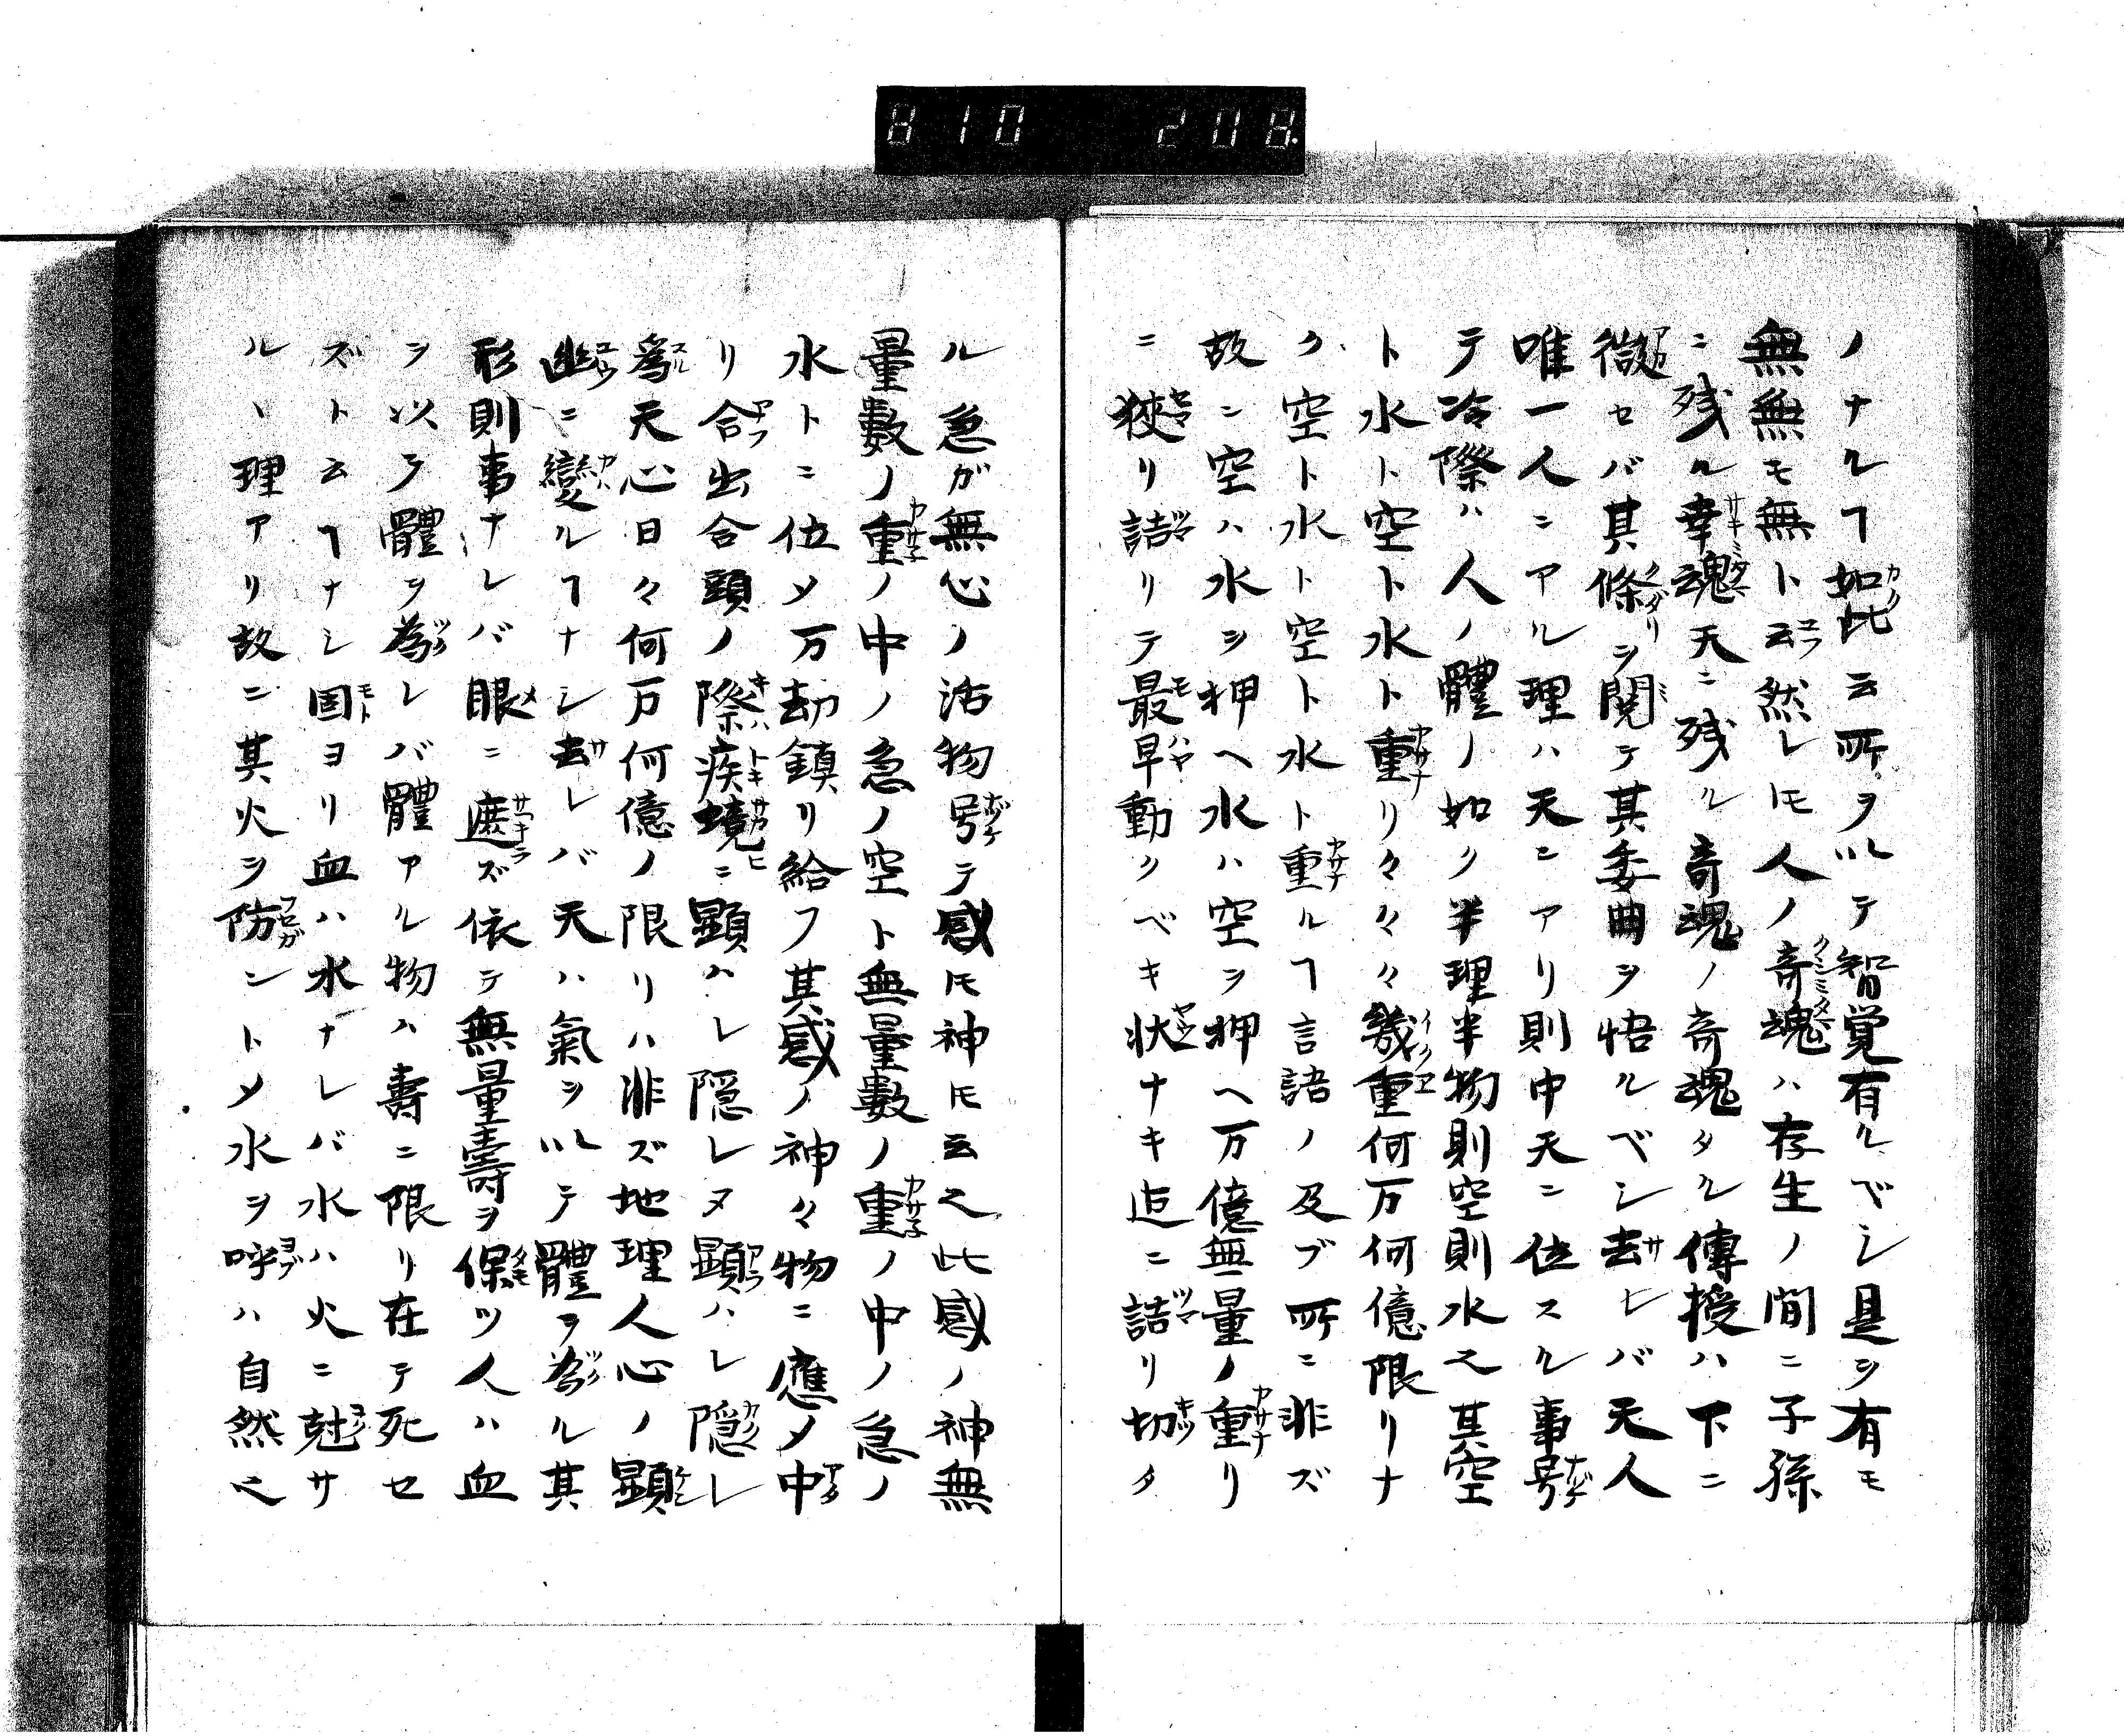 810 208.
ノナルヿ如此云所ヲ以テ智覚有ルベシ是ヲ有モ
無無モ無ト云然レ𪜈人ノ奇魂ハ存生ノ間ニ子孫
ニ残ル幸魂天ニ残ル奇魂ノ奇魂タル傳授ハ下ニ
徴セバ其條ヲ閲テ其委曲ヲ悟ルベシ去レバ天人
唯一人ニアル理ハ天ニアリ則中天ニ位スル事号
テ冷際ハ人ノ體ノ如ク半理半物則空則水也其空
ト水ト空ト水ト重リ々々々々幾重何万何億限リナ
ク空ト水ト空ト水ト重ルヿ言語ノ及ブ所ニ非ズ
故ニ空ハ水ヲ押ヘ水ハ空ヲ押ヘ万億無量ノ重リ
ニ狹リ詰リテ最早動クベキ状ナキ迄ニ詰リ切タ
ル急ガ無心ノ活物号テ感𪜈神𪜈云也此感ノ神無
量數ノ重ノ中ノ急ノ空ト無量數ノ重ノ中ノ急ノ
水トニ位メ万劫鎮リ給フ其感ノ神々物ニ應メ中
リ合出合頭ノ際疾境ニ顕ハレ隠レヌ顕ハレ隠レ
為天心日々何万何億ノ限リハ非ズ地理人心ノ顕
幽ニ變ルヿナシ去レバ天ハ氣ヲ以テ體ヲ為ル其
形則事ナレバ眼ニ遮ズ依テ無量壽ヲ保ツ人ハ血
ヲ以テ體ヲ為レバ體アル物ハ壽ニ限リ在テ死セ
ズト云ヿナシ固ヨリ血ハ水ナレバ水ハ火ニ尅サ
ルヽ理アリ故ニ其火ヲ防ントメ水ヲ呼ハ自然也